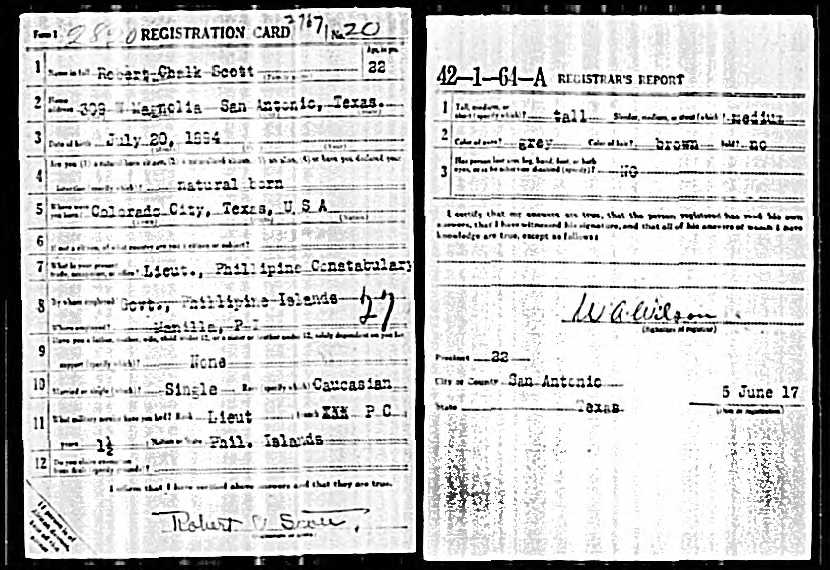 Form 1 REGISTRATION CARD No. 20
Age, in yrs.
1 Name in full Robert Chalk Scott 22
2 Home address 309 W Magnolia San Antonio, Texas.
3 Date of birth July 20, 1894
4 Are you (1) a natural born citizen, (2) a naturalized citizen, (3) an alien, (4) or have you declared your
intention (specify which)? natural born
5 Where were you born? Colorado City, Texas, U S A
6 If not a citizen, of what country are you a citizen or subject?
7 What is your present trade, occupation, or office? Lieut., Phillipine Constabulary
8 By whom employed? Govt., Phillipine Islands
27
Where employed? Manilla, P.I
9 Have you a father, mother, wife, child under 12, or a sister or brother under 12, solely dependent on you for
support (specify which)? None
10 Married or single (which)? Single Race (specify which)? Caucasian
11 What military service have you had? Rank Lieut branch XXX P.C.
years 1½ Nation or State Phil. Islands
12 Do you claim exemption from draft (specify grounds)?
I affirm that I have verified above answers and that they are true.
Robert C Scott
42-1-64-A REGISTRAR'S REPORT
1 Tall, medium, or short (specify which)? tall Slender, medium, or stout (which)? medium
2 Color of eyes? grey Color of hair? brown Bald? no
3 Has person lost arm, leg, hand, foot, or both eyes, or is he otherwise disabled (specify)? NO
I certify that my answers are true, that the person registered has read his own
answers, that I have witnessed his signature, and that all of his answers of which I have
knowledge are true, except as follows:
W A Wilson
(Signature of registrar)
Precinct 22
City or County San Antonio
State Texas
5 June 17
(Date of registration)